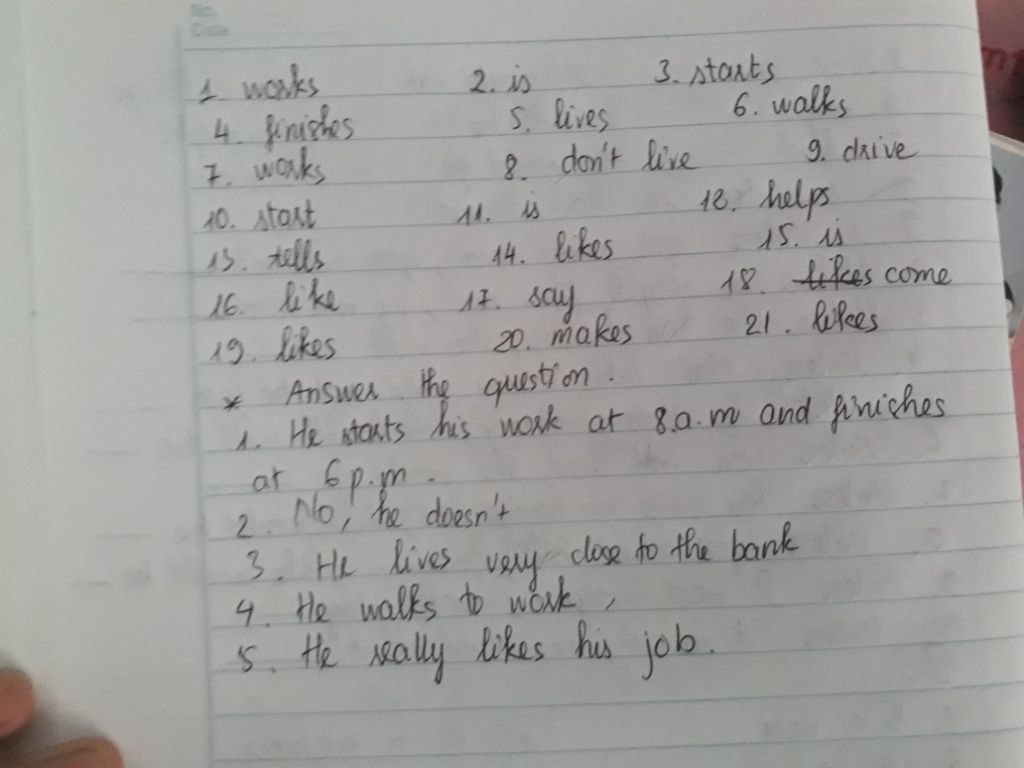 No.
Date
1. works 2. is 3. starts
4. finishes 5. lives 6. walks
7. works 8. don't live 9. drive
10. start 11. is 12. helps
13. tells 14. likes 15. is
16. like 17. say 18. likes come
19. likes 20. makes 21. likes
* Answer the question.
1. He starts his work at 8.a.m and finishes
at 6 p.m.
2. No, he doesn't
3. He lives very close to the bank
4. He walks to work,
5. He really likes his job.